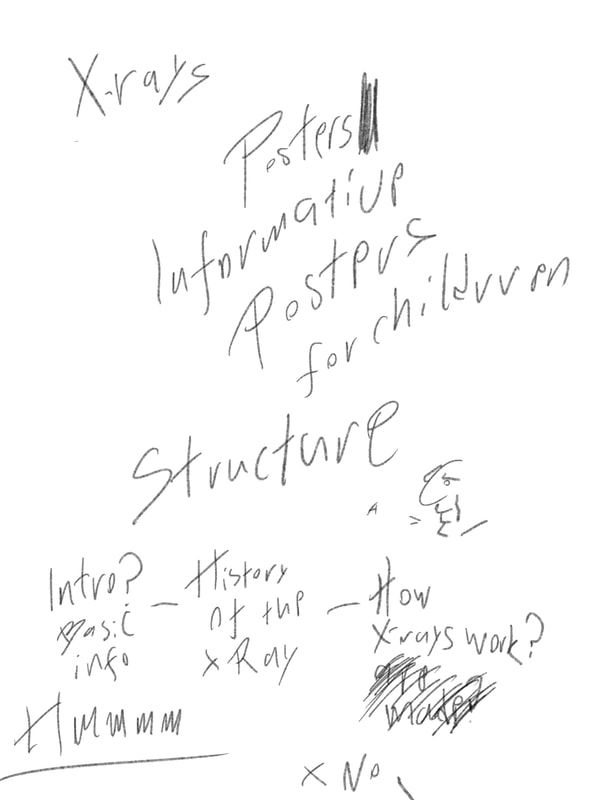 X-rays
Posters
Informative
Posters
for childrren
Structure
Intro? — History — How
Basic of the X-rays work?
info x Ray
Hmmmm
x No